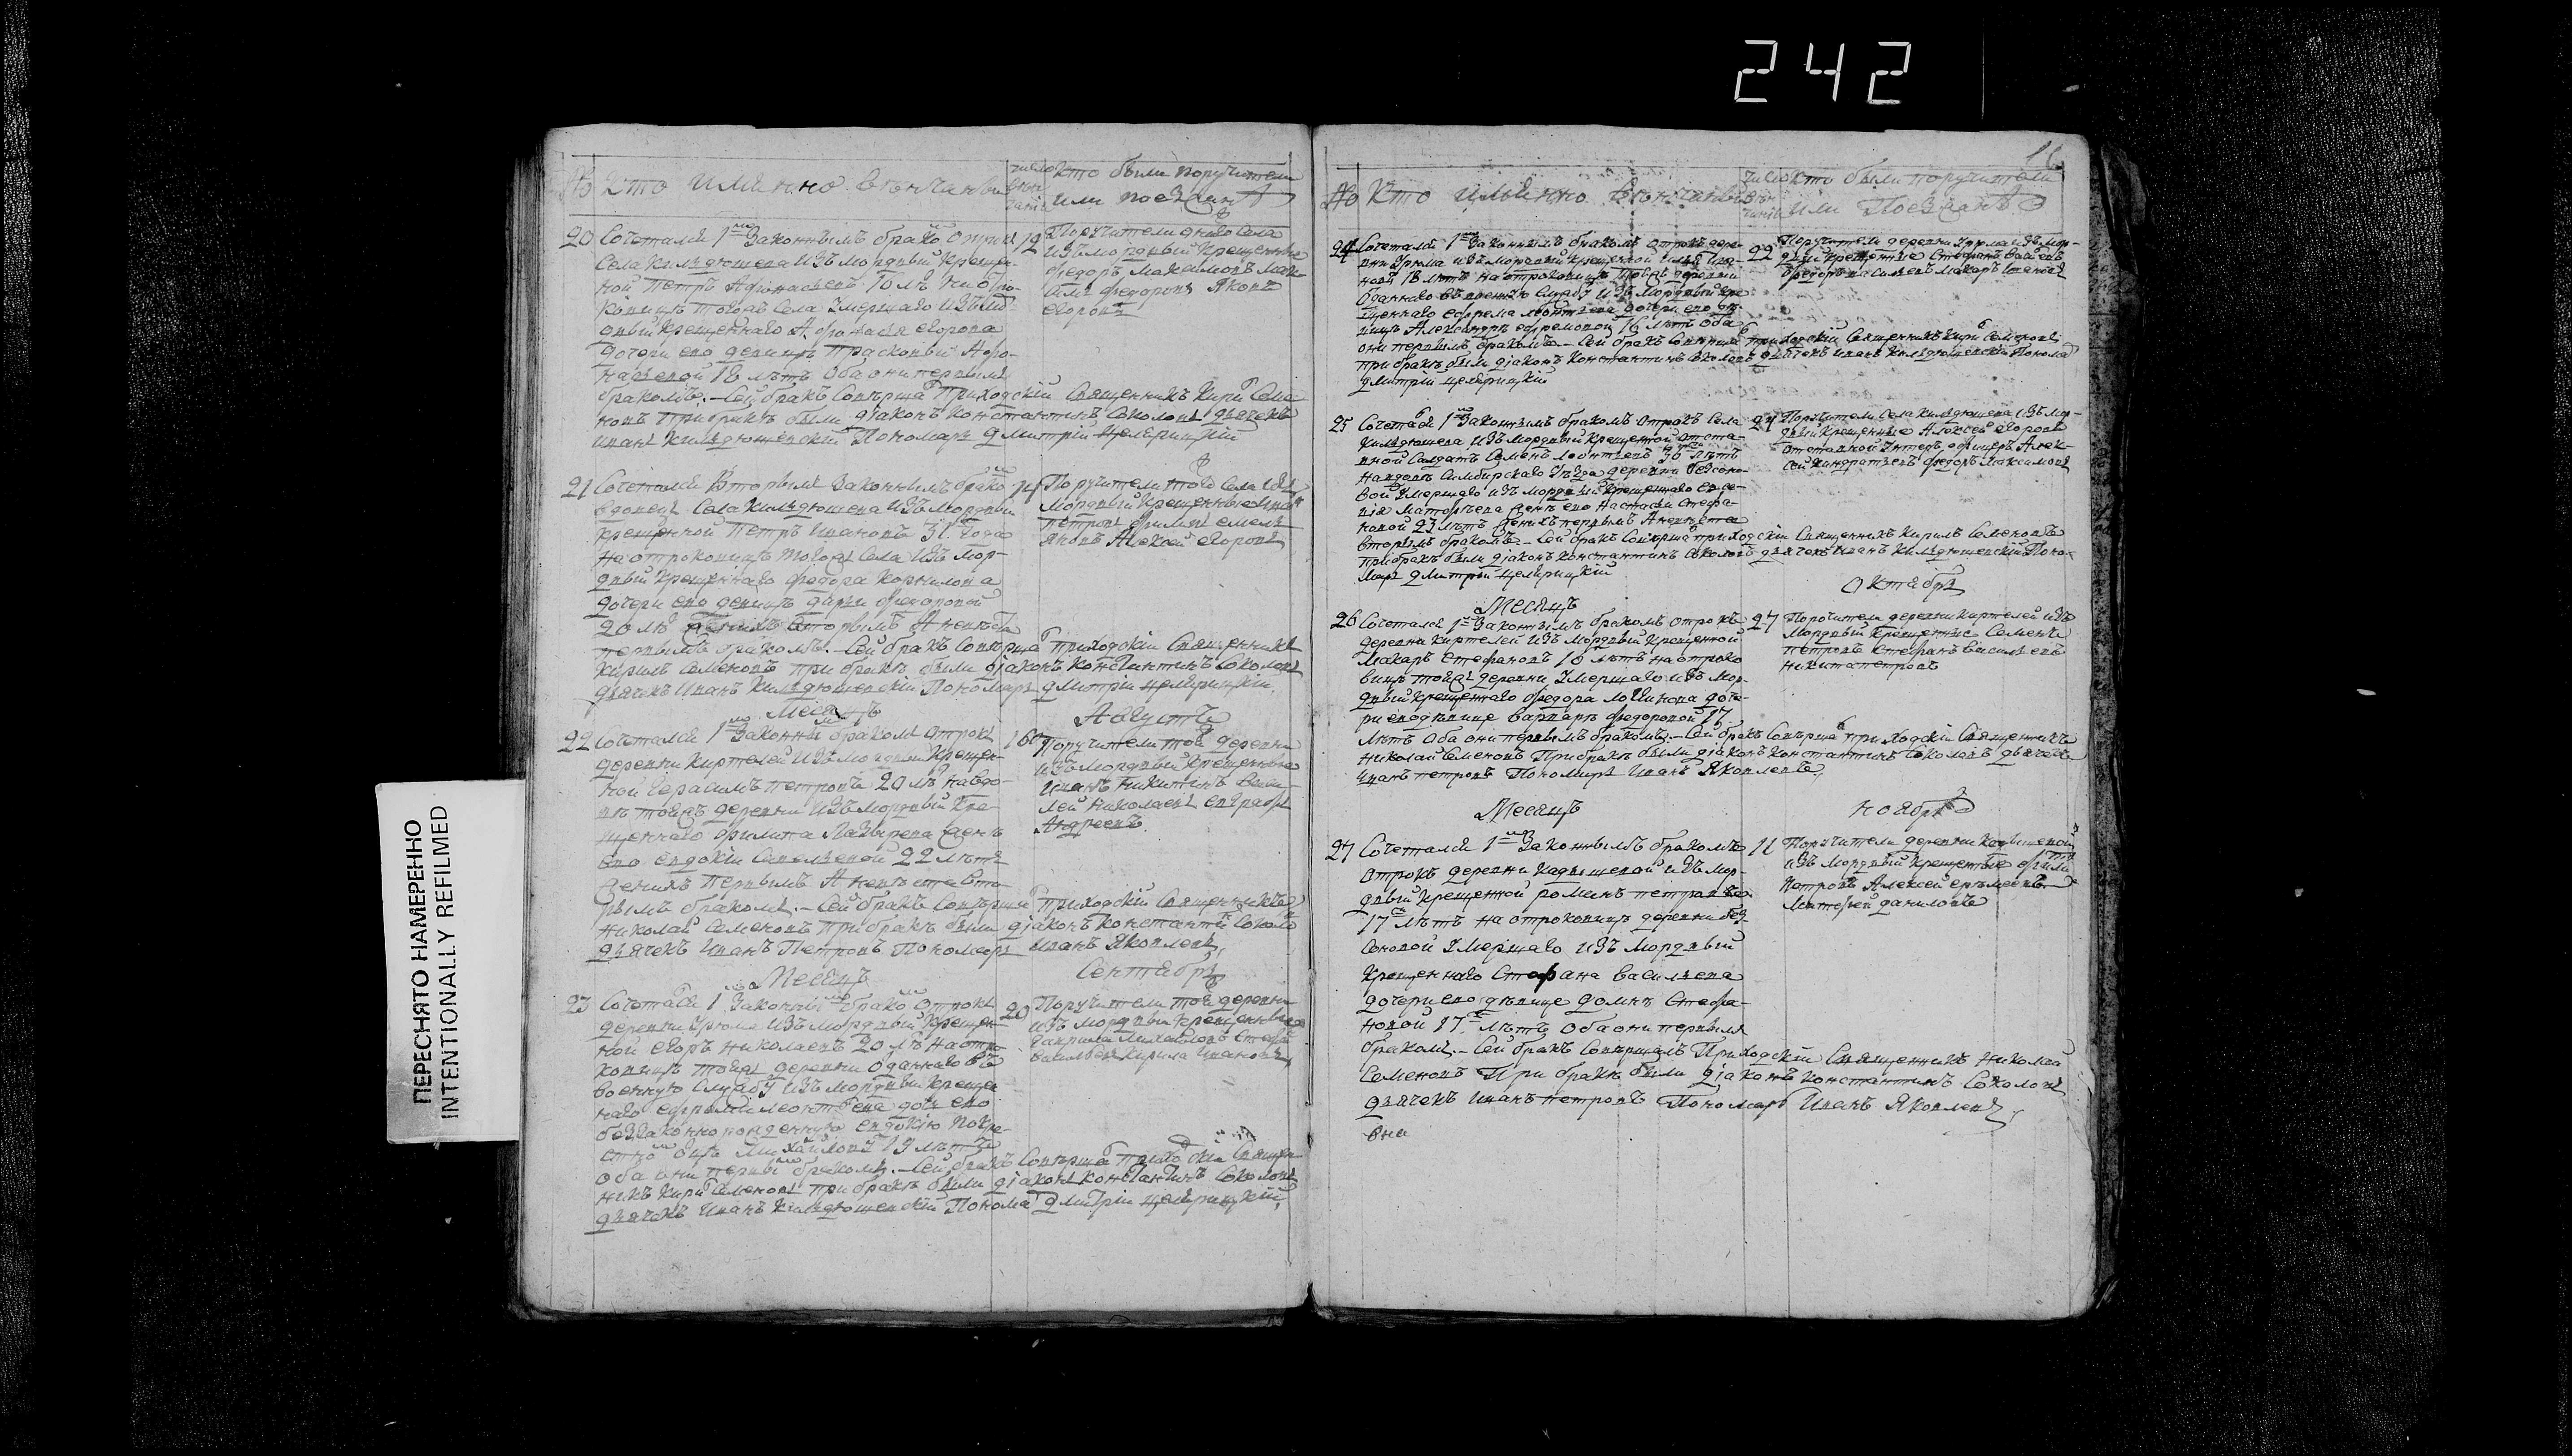 242
ПЕРЕСНЯТО НАМЕРЕННО
INTENTIONALLY REFILMED
№ Кто имянно венчаны
число венчания
Кто были поручители
или поезжанѣ
20 Сочетался 1мъ законнымъ бракомъ отрокъ
села Кильдюшева изъ мордвы креще-
ной Петръ Афонасьевъ
умершаго изъ мор-
двы крещеннаго Афонасья Егорова
дочери ево девицѣ Прасковьи Афо-
насьевой 18 лѣтъ оба они первымъ
бракомъ. – Сей бракъ совершалъ приходскій священникъ Кирилъ Семе-
новъ при бракѣ были діаконъ Константинъ Соколовъ дьячекъ
Иванъ Кильдюшевскій пономарь Дмитрій
12 Поручители онаго села
изъ мордвы крещенные
Федоръ Максимовъ Мак-
симъ Федоровъ Яковъ
Егоровъ
21 Сочетался вторымъ законнымъ бракомъ
вдовецъ села Кильдюшева изъ мордвы
крещеной Петръ Ивановъ 31 года
на отроковицѣ тогожъ села изъ мор-
двы крещеннаго Федора Корнилова
дочери ево девицѣ Дарьи Федоровой
20 лѣ женихъ вторымъ а невѣста
первымъ бракомъ. – Сей бракъ совершалъ приходскій священникъ
Кирилъ Семеновъ при бракѣ были діаконъ Константинъ Соколовъ
дьячекъ Иванъ Кильдюшевскій пономарь Дмитрій
Поручители того села изъ
мордвы крещенные Иванъ
Петровъ Филипъ Емель-
яновъ Алексей Егоровъ
Месяцъ Августъ
22 Сочетался 1мъ законнымъ бракомъ отрокъ
деревни Киртелей изъ мордвы крещен-
ной Герасимъ Петровъ 20 лѣ на вдо-
вѣ тоежъ деревни изъ мордвы кре-
щеннаго Филипа Лазырева женѣ
ево Евдокіи Савельевой 22 лѣтъ
женихъ первымъ а невѣста вто-
рымъ бракомъ. – Сей бракъ совершалъ приходскій священникъ
Николай Семеновъ при бракѣ были діаконъ Константинъ Соколовъ
дьячекъ Иванъ Петровъ пономарь Иванъ Яковлевъ
Поручители той деревни
изъ мордвы крещенные
Иванъ Никитинъ Васи-
лей Николаевъ Евграфъ
Андреевъ
Месяцъ Сентябрь
23 Сочетался 1мъ законнымъ бракомъ отрокъ
деревни Урюма изъ мордвы крещен-
ной Егоръ Николаевъ 20 лѣ на отро-
ковицѣ тоежъ деревни отданнаго въ
военную службу изъ мордвы креще-
наго Ефрема Леонтьева дочь ево
беззаконнорожденную Евдокію по кре-
стному отцѣ Михайлову 19 лѣтъ
оба они первымъ бракомъ. – Сей бракъ совершалъ приходскій священ-
никъ Кирилъ Семеновъ при бракѣ были діаконъ Константинъ Соколовъ
дьячекъ Иванъ Кильдюшевскій пономарь Дмитрій
20 Поручители той деревни
изъ мордвы крещенные
Гаврила Михайловъ Стефанъ
Васильевъ Кирила Ивановъ
16
№ Кто имянно венчаны
число венчания
Кто были поручители
или поезжанѣ
24 Сочетался 1мъ законнымъ бракомъ отрокъ дере-
вни Урюма изъ мордвы крещенной
18 лѣтъ на отроковицѣ тоежъ деревни
отданнаго въ военную службу изъ мордвы кре-
щеннаго Ефрема Леонтьева дочери ево дѣ-
вицѣ Александрѣ Ефремовой 16 лѣтъ оба
они первымъ бракомъ. – Сей бракъ совершалъ приходскій священникъ Кирилъ Семеновъ
при бракѣ были діаконъ Константинъ Соколовъ дьячекъ Иванъ Кильдюшевскій пономарь
Дмитрій
22 Поручители деревни Урюма изъ мор-
двы крещенные Стефанъ Васильевъ
Федоръ Васильевъ Макаръ Ивановъ
25 Сочетался 1мъ законнымъ бракомъ отрокъ села
Кильдюшева изъ мордвы крещенной отста-
вной солдатъ Семенъ Леонтьевъ 36 лѣтъ
на вдовѣ Симбирскаго уѣзда деревни Безсоно-
вой умершаго изъ мордвы крещеннаго Евсе-
вія Матвѣева женѣ ево Настасьи Стефа-
новой 23 лѣтъ женихъ первымъ а невѣста
вторымъ бракомъ. – Сей бракъ совершалъ приходскій священникъ Кирилъ Семеновъ
при бракѣ были діаконъ Константинъ Соколовъ дьячекъ Иванъ Кильдюшевскій поно-
марь Дмитрій
24 Поручители села Кильдюшева изъ мор-
двы крещенные Алексей Егоровъ
отставной унтеръ офицеръ Алек-
сей Кандратьевъ Федоръ Максимовъ
Месяцъ Октябрь
26 Сочетался 1мъ законнымъ бракомъ отрокъ
деревни Киртелей изъ мордвы крещенной
Макаръ Стефановъ 18 лѣтъ на отроко-
вицѣ тоежъ деревни умершаго изъ мор-
двы крещеннаго Федора Логинова доче-
ри ево дѣвице Варварѣ Федоровой 17
лѣтъ оба они первымъ бракомъ. – Сей бракъ совершалъ приходскій священникъ
Николай Семеновъ при бракѣ были діаконъ Константинъ Соколовъ дьячекъ
Иванъ Петровъ пономарь Иванъ Яковлевъ
27 Поручители деревни Киртелей изъ
мордвы крещенные Семенъ
Петровъ Стефанъ Васильевъ
Никита Петровъ
Месяцъ Ноябрь
27 Сочетался 1мъ законнымъ бракомъ
отрокъ деревни Кадышевой изъ мор-
двы крещенной Романъ Петровъ
17 лѣтъ на отроковицѣ деревни Без-
соновой умершаго изъ мордвы
крещеннаго Стефана Васильева
дочери ево дѣвице Домнѣ Стефа-
новой 17 лѣтъ оба они первымъ
бракомъ. – Сей бракъ совершалъ приходскій священникъ Николай
Семеновъ при бракѣ были діаконъ Константинъ Соколовъ
дьячекъ Иванъ Петровъ пономарь Иванъ Яковлевъ
11 Поручители деревни Кадышевой
изъ мордвы крещенные Филипъ
Петровъ Алексей Еремеевъ
Матфей Даниловъ